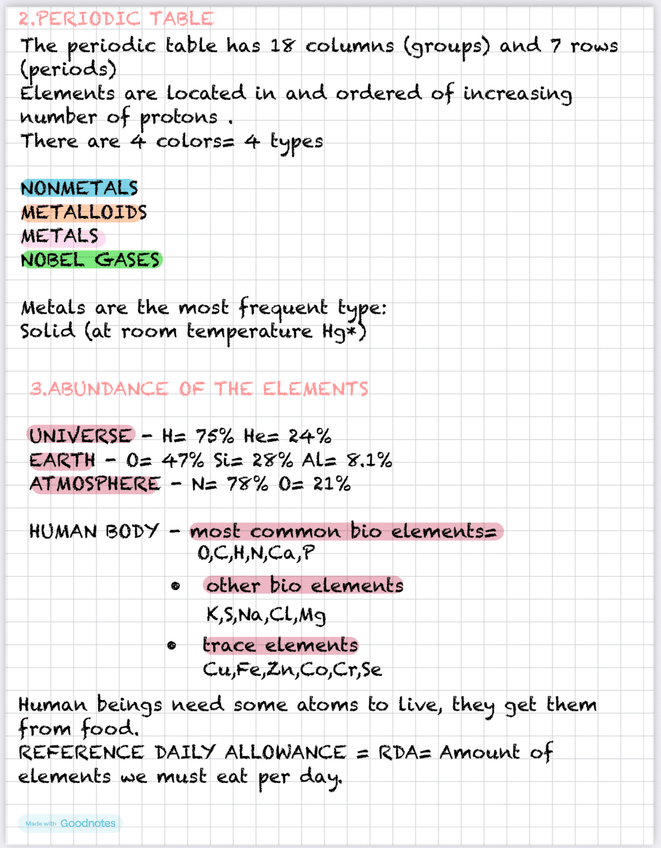 2.PERIODIC TABLE
The periodic table has 18 columns (groups) and 7 rows
(periods)
Elements are located in and ordered of increasing
number of protons .
There are 4 colors= 4 types
NONMETALS
METALLOIDS
METALS
NOBEL GASES
Metals are the most frequent type:
Solid (at room temperature Hg*)
3.ABUNDANCE OF THE ELEMENTS
UNIVERSE - H= 75% He= 24%
EARTH - O= 47% Si= 28% Al= 8.1%
ATMOSPHERE - N= 78% O= 21%
HUMAN BODY - most common bio elements=
O,C,H,N,Ca,P
• other bio elements
K,S,Na,Cl,Mg
• trace elements
Cu,Fe,Zn,Co,Cr,Se
Human beings need some atoms to live, they get them
from food.
REFERENCE DAILY ALLOWANCE = RDA= Amount of
elements we must eat per day.
Made with Goodnotes